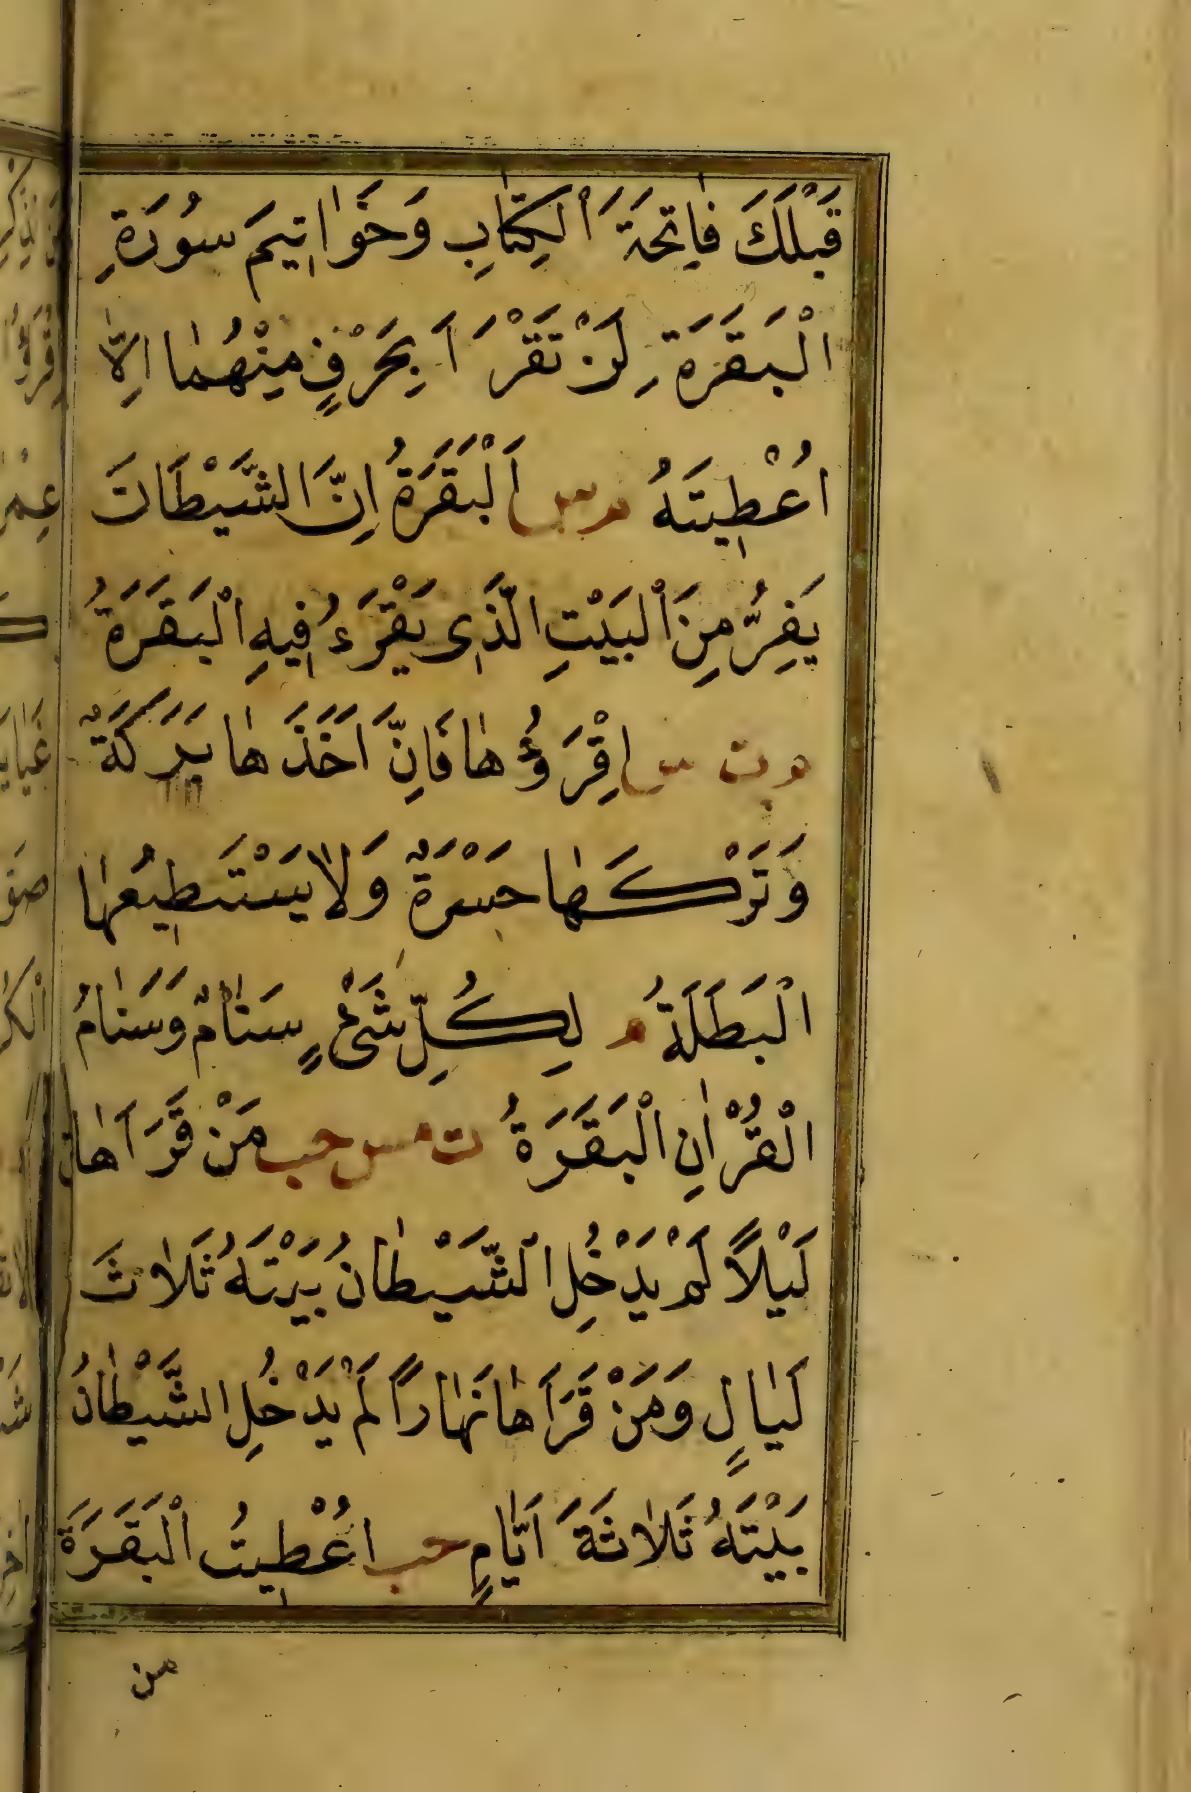 قَبْلَكَ فَاتِحَةَ الْكِتَابِ وَخَوَاتِيمَ سُورَةِ
الْبَقَرَةِ لَنْ تَقْرَأَ بِحَرْفٍ مِنْهُمَا اِلَّا
اُعْطِيتَهُ م س اَلْبَقَرَةُ اِنَّ الشَّيْطَانَ
يَفِرُّ مِنَ الْبَيْتِ الَّذِى يُقْرَءُ فِيهِ الْبَقَرَةُ
م ت س اِقْرَؤُهَا فَاِنَّ اَخْذَهَا بَرَكَةٌ
وَتَرْكَهَا حَسْرَةٌ وَلَا يَسْتَطِيعُهَا
الْبَطَلَةُ م لِكُلِّ شَىْءٍ سَنَامٌ وَسَنَامُ
الْقُرْاٰنِ الْبَقَرَةُ ت مس حب مَنْ قَرَاَهَا
لَيْلًا لَمْ يَدْخُلِ الشَّيْطَانُ بَيْتَهُ ثَلَاثَ
لَيَالٍ وَمَنْ قَرَاَهَا نَهَارًا لَمْ يَدْخُلِ الشَّيْطَانُ
بَيْتَهُ ثَلَاثَةَ اَيَّامٍ حب اُعْطِيتُ الْبَقَرَةَ
من